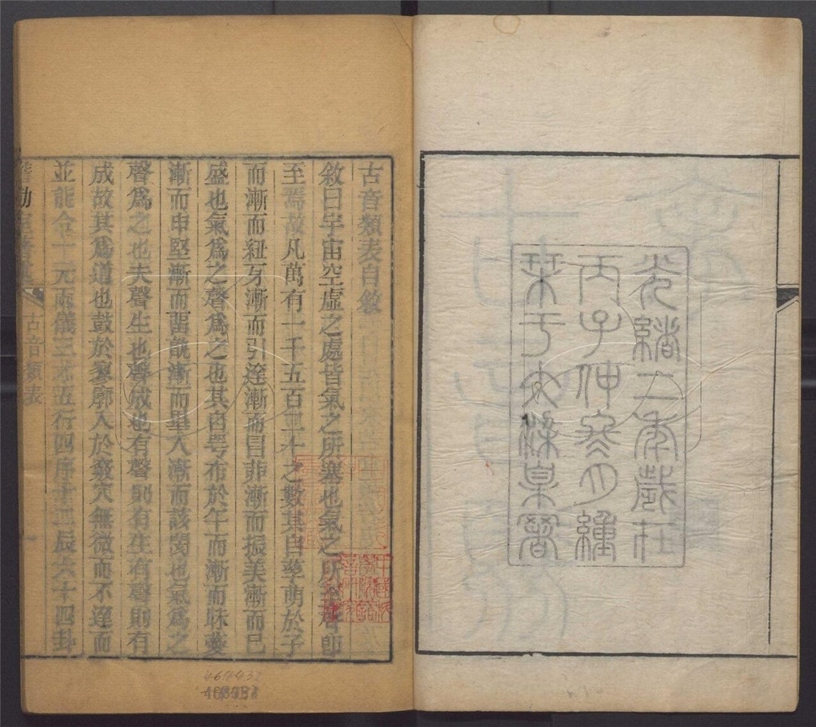 光緒二年歲在
丙子仲冬月鍾
栞于安慶臬署
古音類表自敘
敘曰宇宙空虛之處皆氣之所塞也氣之所至聲即
至焉故凡萬有一千五百二十之數其自孳萌於子
而漸而紐牙漸而引達漸而冒茆漸而振美漸而巳
盛也氣爲之聲爲之也其自咢布於午而漸而昧薆
漸而申堅漸而畱孰漸而畢入漸而該閡也氣爲之
聲爲之也夫聲生也聲成也有聲則有生有聲則有
成故其爲道也鼓於寥廓入於竅穴無微而不達而
並能令一元兩儀三才五行四序十二辰六十四卦
古音類表
464432